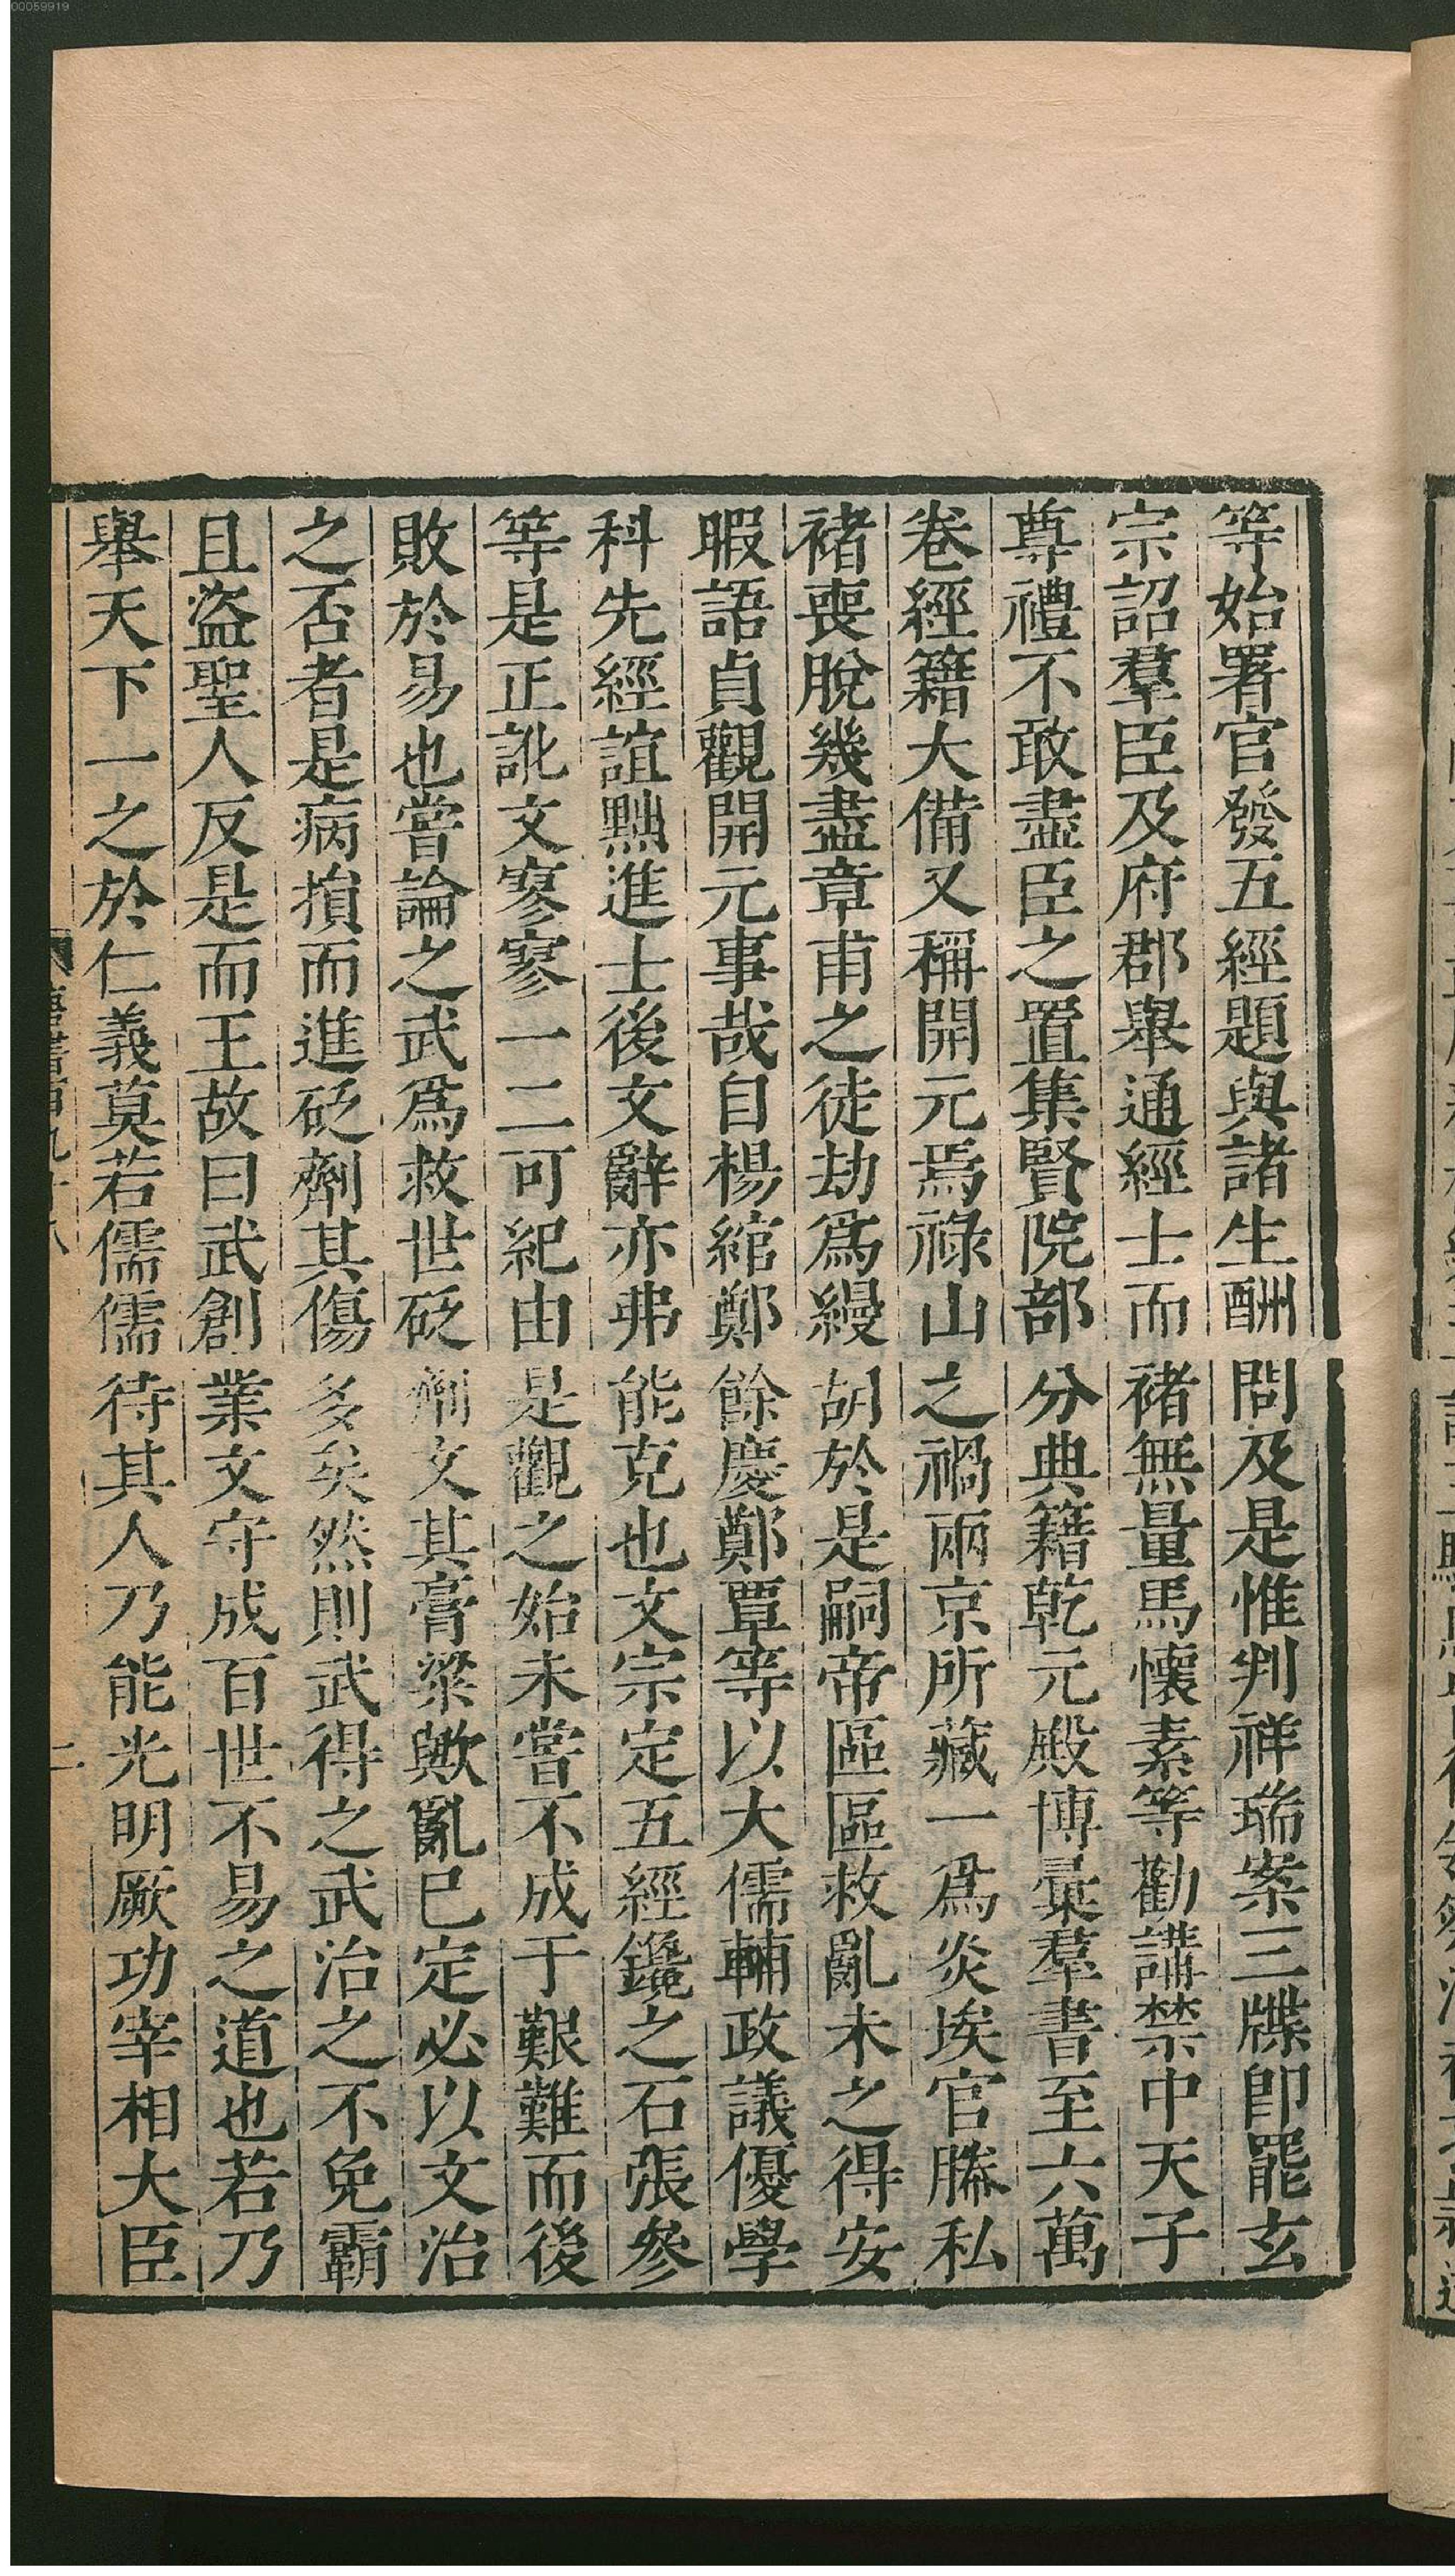 00059919
等始署官發五經題與諸生酬問及是惟判祥瑞案三牒即罷玄
宗詔羣臣及府郡舉通經士而褚無量馬懷素等勸講禁中天子
尊禮不敢盡臣之置集賢院部分典籍乾元殿博彙羣書至六萬
卷經籍大備又稱開元焉祿山之禍兩京所藏一爲炎埃官縢私
褚喪脫幾盡章甫之徒劫爲縵胡於是嗣帝區區救亂未之得安
暇語貞觀開元事哉自楊綰鄭餘慶鄭覃等以大儒輔政議優學
科先經誼黜進士後文辭亦弗能克也文宗定五經鑱之石張參
等是正訛文寥寥一二可紀由是觀之始未嘗不成于艱難而後
敗於易也嘗論之武爲救世砭劑文其膏粱歟亂已定必以文治
之否者是病損而進砭劑其傷多矣然則武得之武治之不免霸
且盜聖人反是而王故曰武創業文守成百世不易之道也若乃
舉天下一之於仁義莫若儒儒待其人乃能光明厥功宰相大臣
二